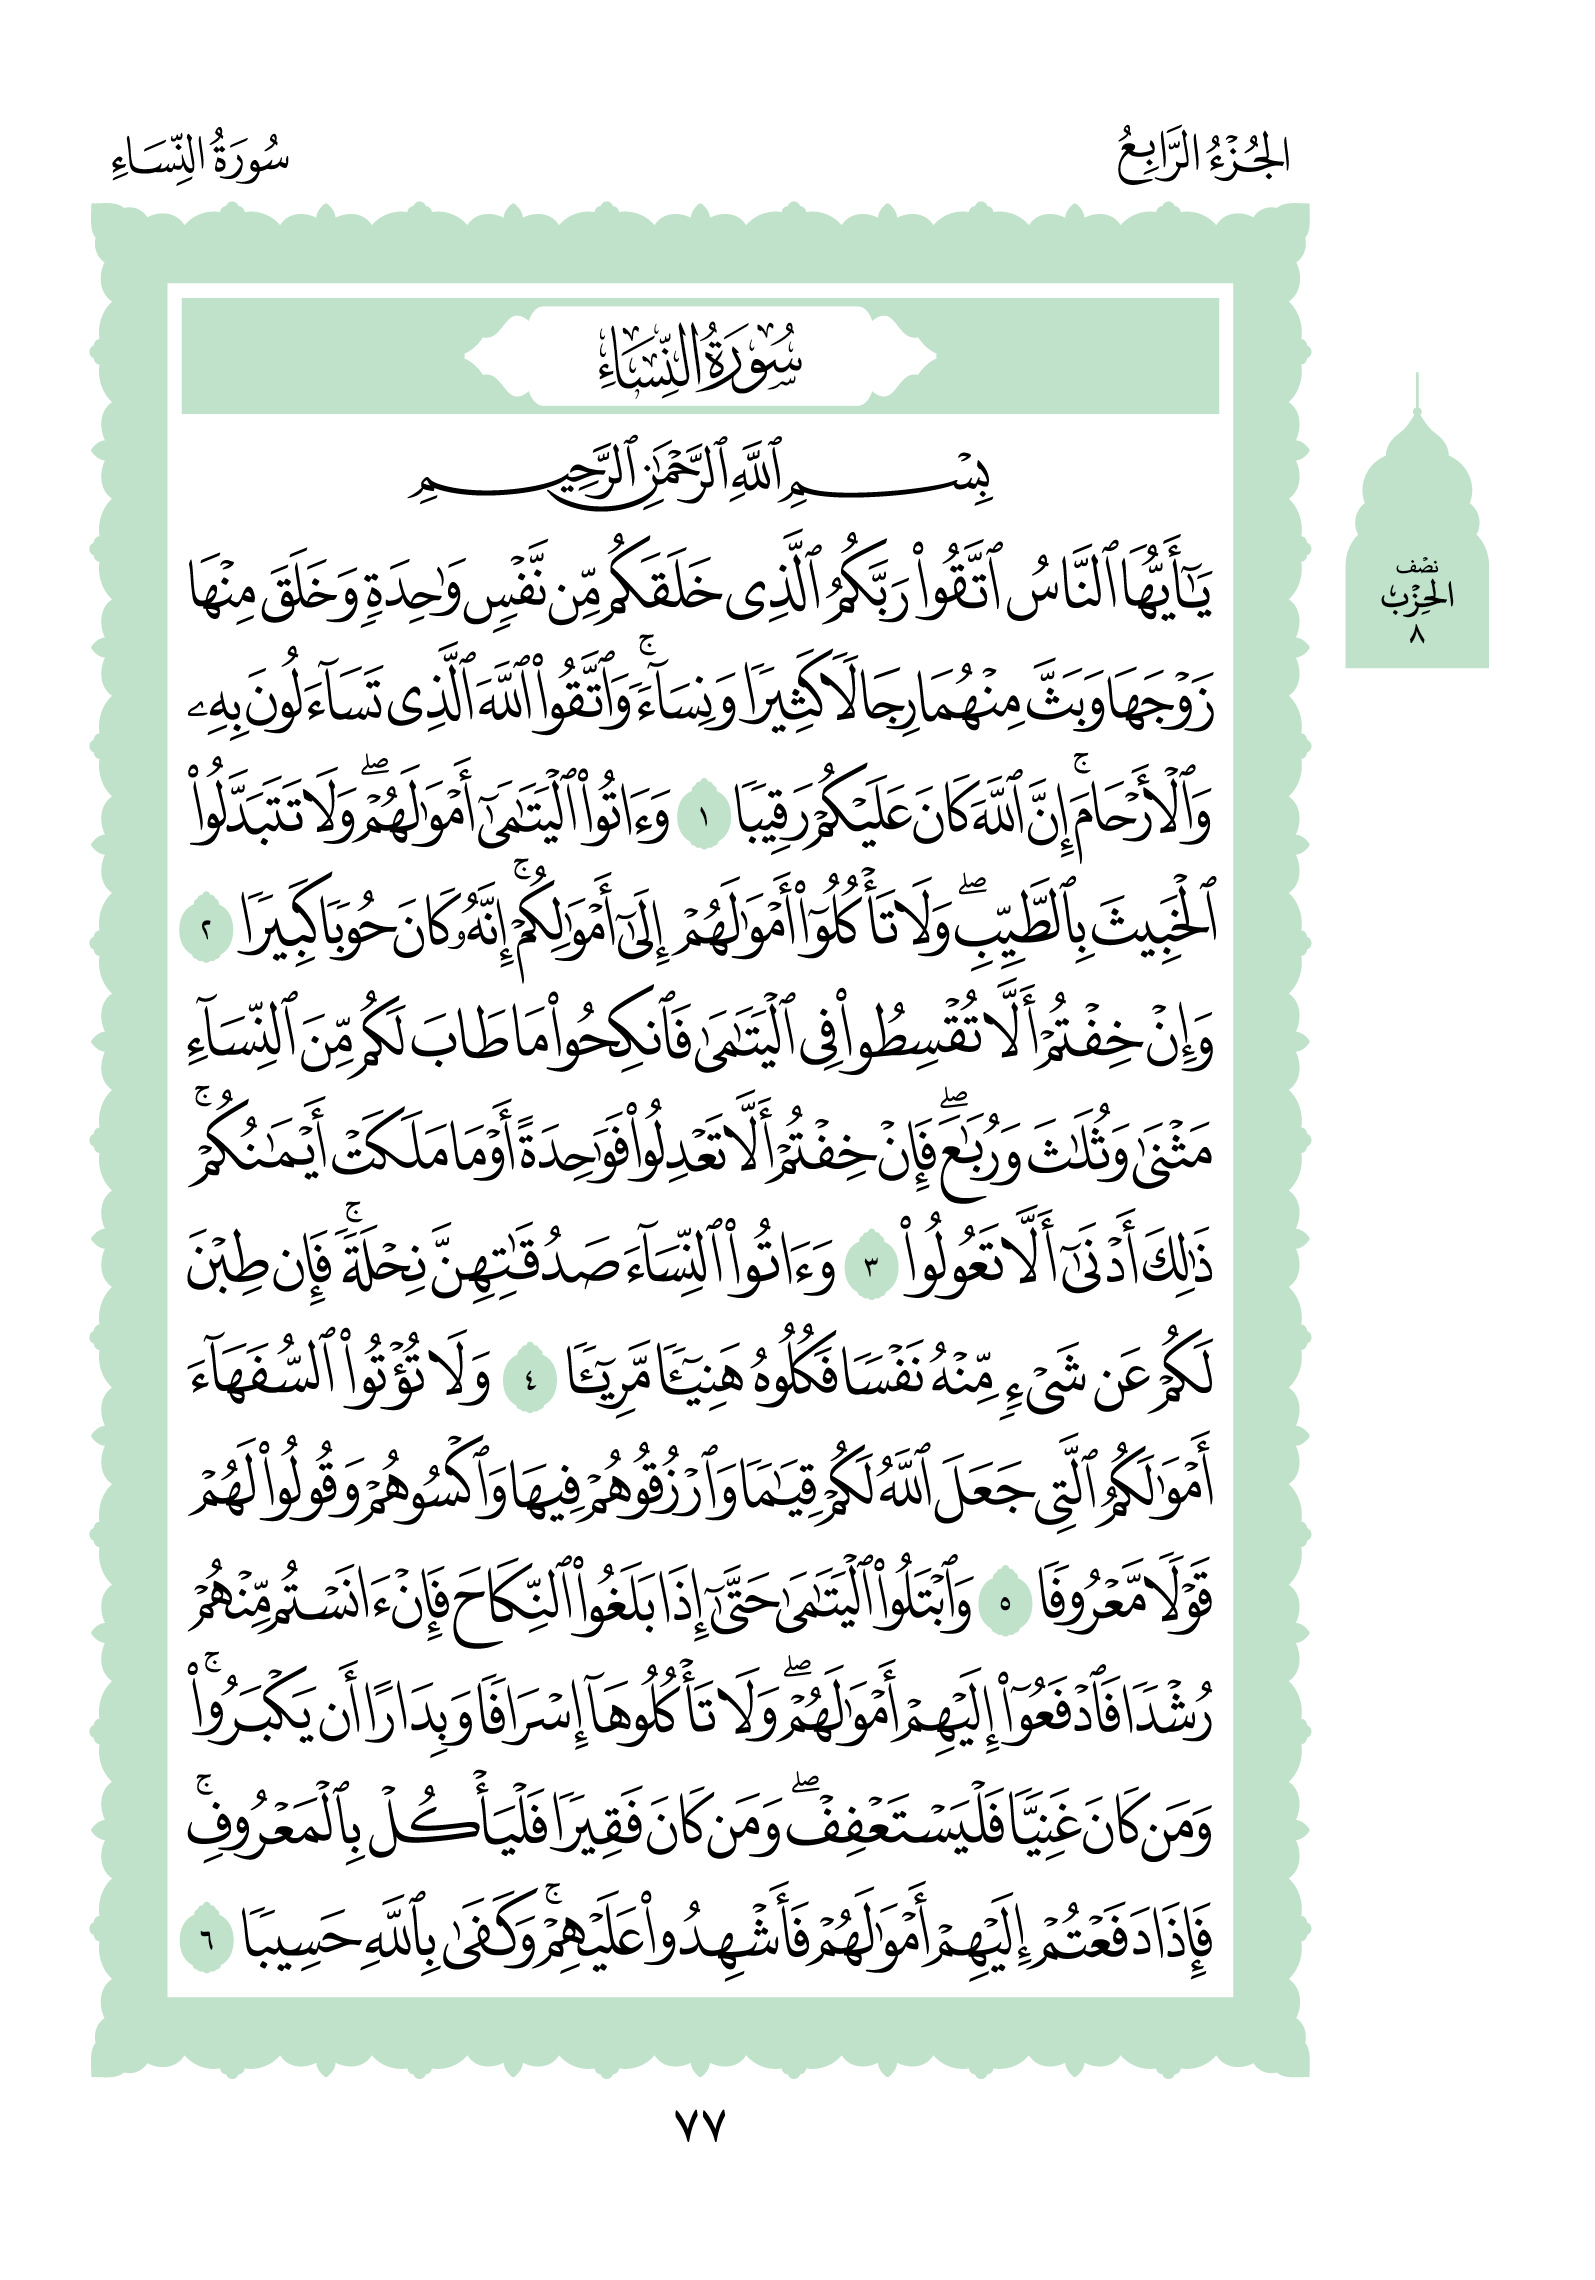 الجُزْءُ الرَّابِعُ
سُورَةُ النِّسَاءِ
سُورَةُ النِّسَاءِ
بِسْمِ ٱللَّهِ ٱلرَّحْمَٰنِ ٱلرَّحِيمِ
يَٰٓأَيُّهَا ٱلنَّاسُ ٱتَّقُوا۟ رَبَّكُمُ ٱلَّذِى خَلَقَكُم مِّن نَّفْسٍ وَٰحِدَةٍ وَخَلَقَ مِنْهَا
زَوْجَهَا وَبَثَّ مِنْهُمَا رِجَالًا كَثِيرًا وَنِسَآءً ۚ وَٱتَّقُوا۟ ٱللَّهَ ٱلَّذِى تَسَآءَلُونَ بِهِۦ
وَٱلْأَرْحَامَ ۚ إِنَّ ٱللَّهَ كَانَ عَلَيْكُمْ رَقِيبًا ١ وَءَاتُوا۟ ٱلْيَتَٰمَىٰٓ أَمْوَٰلَهُمْ ۖ وَلَا تَتَبَدَّلُوا۟
ٱلْخَبِيثَ بِٱلطَّيِّبِ ۖ وَلَا تَأْكُلُوٓا۟ أَمْوَٰلَهُمْ إِلَىٰٓ أَمْوَٰلِكُمْ ۚ إِنَّهُۥ كَانَ حُوبًا كَبِيرًا ٢
وَإِنْ خِفْتُمْ أَلَّا تُقْسِطُوا۟ فِى ٱلْيَتَٰمَىٰ فَٱنكِحُوا۟ مَا طَابَ لَكُم مِّنَ ٱلنِّسَآءِ
مَثْنَىٰ وَثُلَٰثَ وَرُبَٰعَ ۖ فَإِنْ خِفْتُمْ أَلَّا تَعْدِلُوا۟ فَوَٰحِدَةً أَوْ مَا مَلَكَتْ أَيْمَٰنُكُمْ ۚ
ذَٰلِكَ أَدْنَىٰٓ أَلَّا تَعُولُوا۟ ٣ وَءَاتُوا۟ ٱلنِّسَآءَ صَدُقَٰتِهِنَّ نِحْلَةً ۚ فَإِن طِبْنَ
لَكُمْ عَن شَىْءٍ مِّنْهُ نَفْسًا فَكُلُوهُ هَنِيٓـًٔا مَّرِيٓـًٔا ٤ وَلَا تُؤْتُوا۟ ٱلسُّفَهَآءَ
أَمْوَٰلَكُمُ ٱلَّتِى جَعَلَ ٱللَّهُ لَكُمْ قِيَٰمًا وَٱرْزُقُوهُمْ فِيهَا وَٱكْسُوهُمْ وَقُولُوا۟ لَهُمْ
قَوْلًا مَّعْرُوفًا ٥ وَٱبْتَلُوا۟ ٱلْيَتَٰمَىٰ حَتَّىٰٓ إِذَا بَلَغُوا۟ ٱلنِّكَاحَ فَإِنْ ءَانَسْتُم مِّنْهُمْ
رُشْدًا فَٱدْفَعُوٓا۟ إِلَيْهِمْ أَمْوَٰلَهُمْ ۖ وَلَا تَأْكُلُوهَآ إِسْرَافًا وَبِدَارًا أَن يَكْبَرُوا۟ ۚ
وَمَن كَانَ غَنِيًّا فَلْيَسْتَعْفِفْ ۖ وَمَن كَانَ فَقِيرًا فَلْيَأْكُلْ بِٱلْمَعْرُوفِ ۚ
فَإِذَا دَفَعْتُمْ إِلَيْهِمْ أَمْوَٰلَهُمْ فَأَشْهِدُوا۟ عَلَيْهِمْ ۚ وَكَفَىٰ بِٱللَّهِ حَسِيبًا ٦
نصف
الحِزْب
٨
٧٧